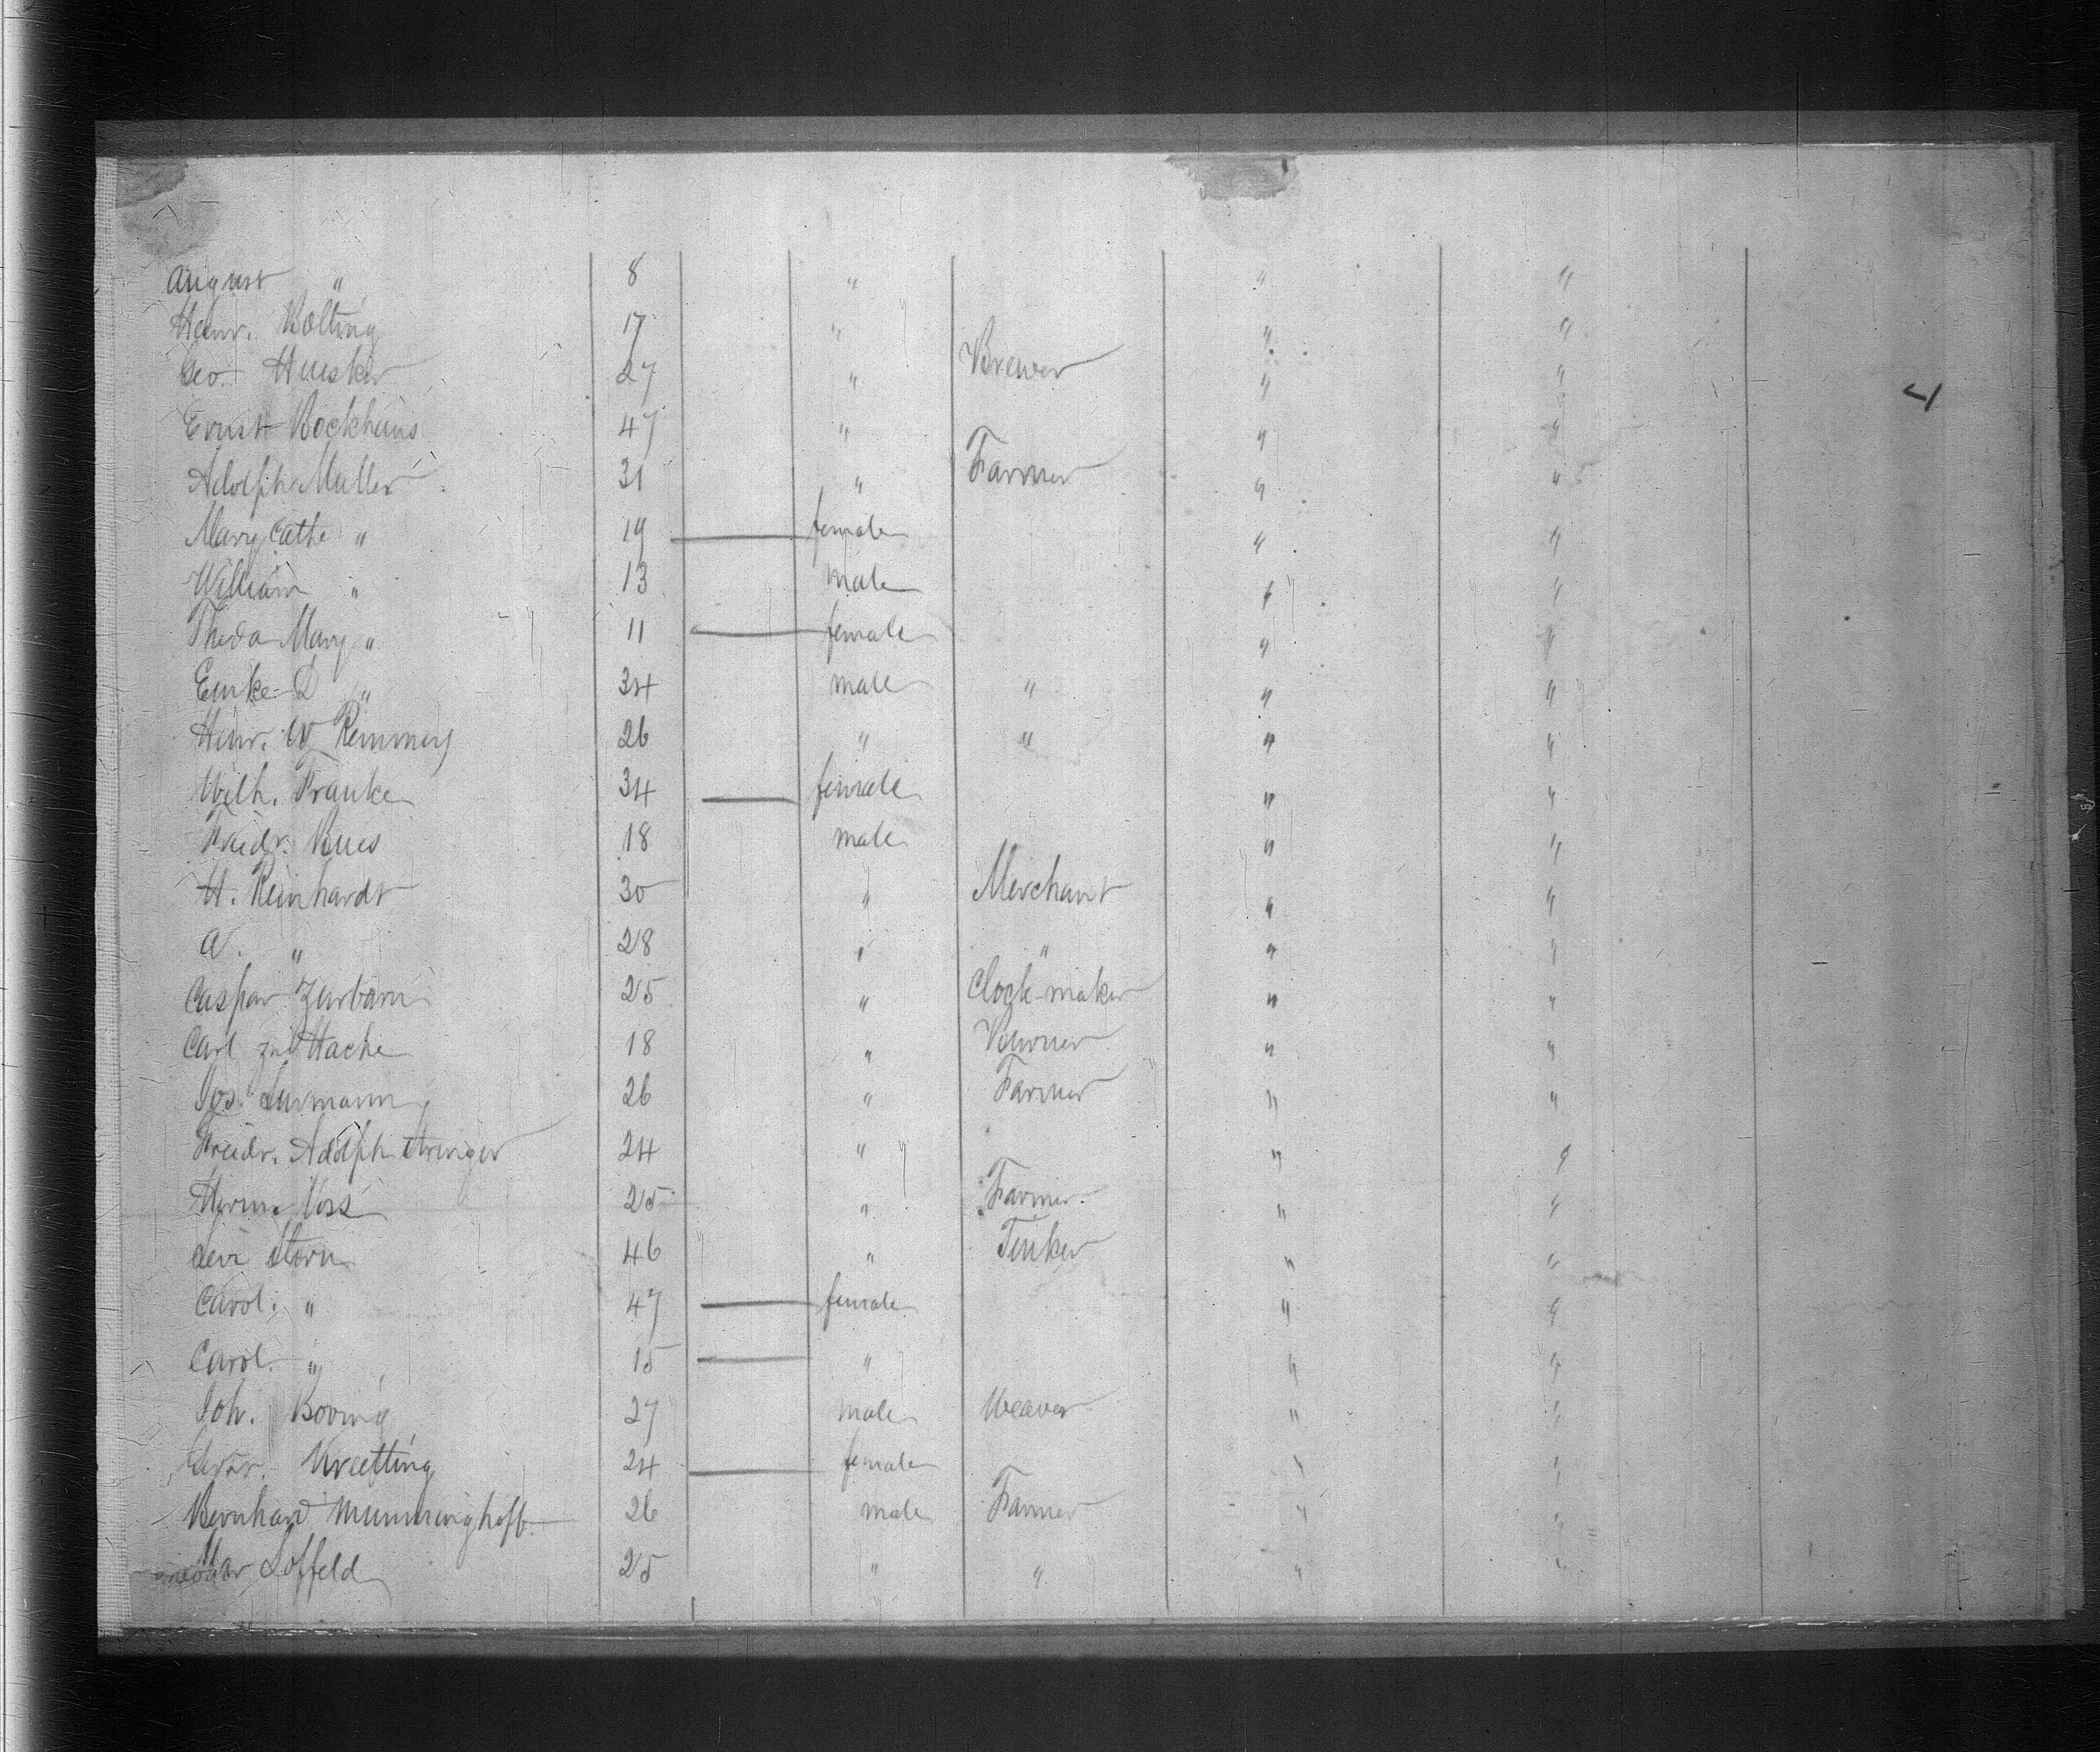 August " 8 " " "
Heinr. Bolting 17 " " "
Geo. Huesker 27 " Brewer " "
Ernst Bockhaus 47 " " "
Adolph Muller 31 " Farmer " "
Mary Cathe " 19 — female " "
William " 13 male " "
Theda Mary " 11 — female " "
Emke D " 34 male " " "
Heinr. W Remmers 26 " " " "
Wilh. Franke 34 — female " "
Friedr. Bues 18 male " "
H. Reinhardt 30 " Merchant " "
A. " 28 " " " "
Caspar Zurbarn 25 " Clock-maker " "
Carl zur Hache 18 " " "
Jos. Lurmann 26 " Farmer " "
Friedr. Adolph 24 " " "
Herm. Voss 25 " Farmer " "
Levi Stern 46 " Tinker " "
Carol. " 47 — female " "
Carol. " 15 — " " "
Joh. Boving 27 male Weaver " "
24 — female " "
Bernhard Mumminghoff 26 male Farmer " "
Loffeld 25 " " " "